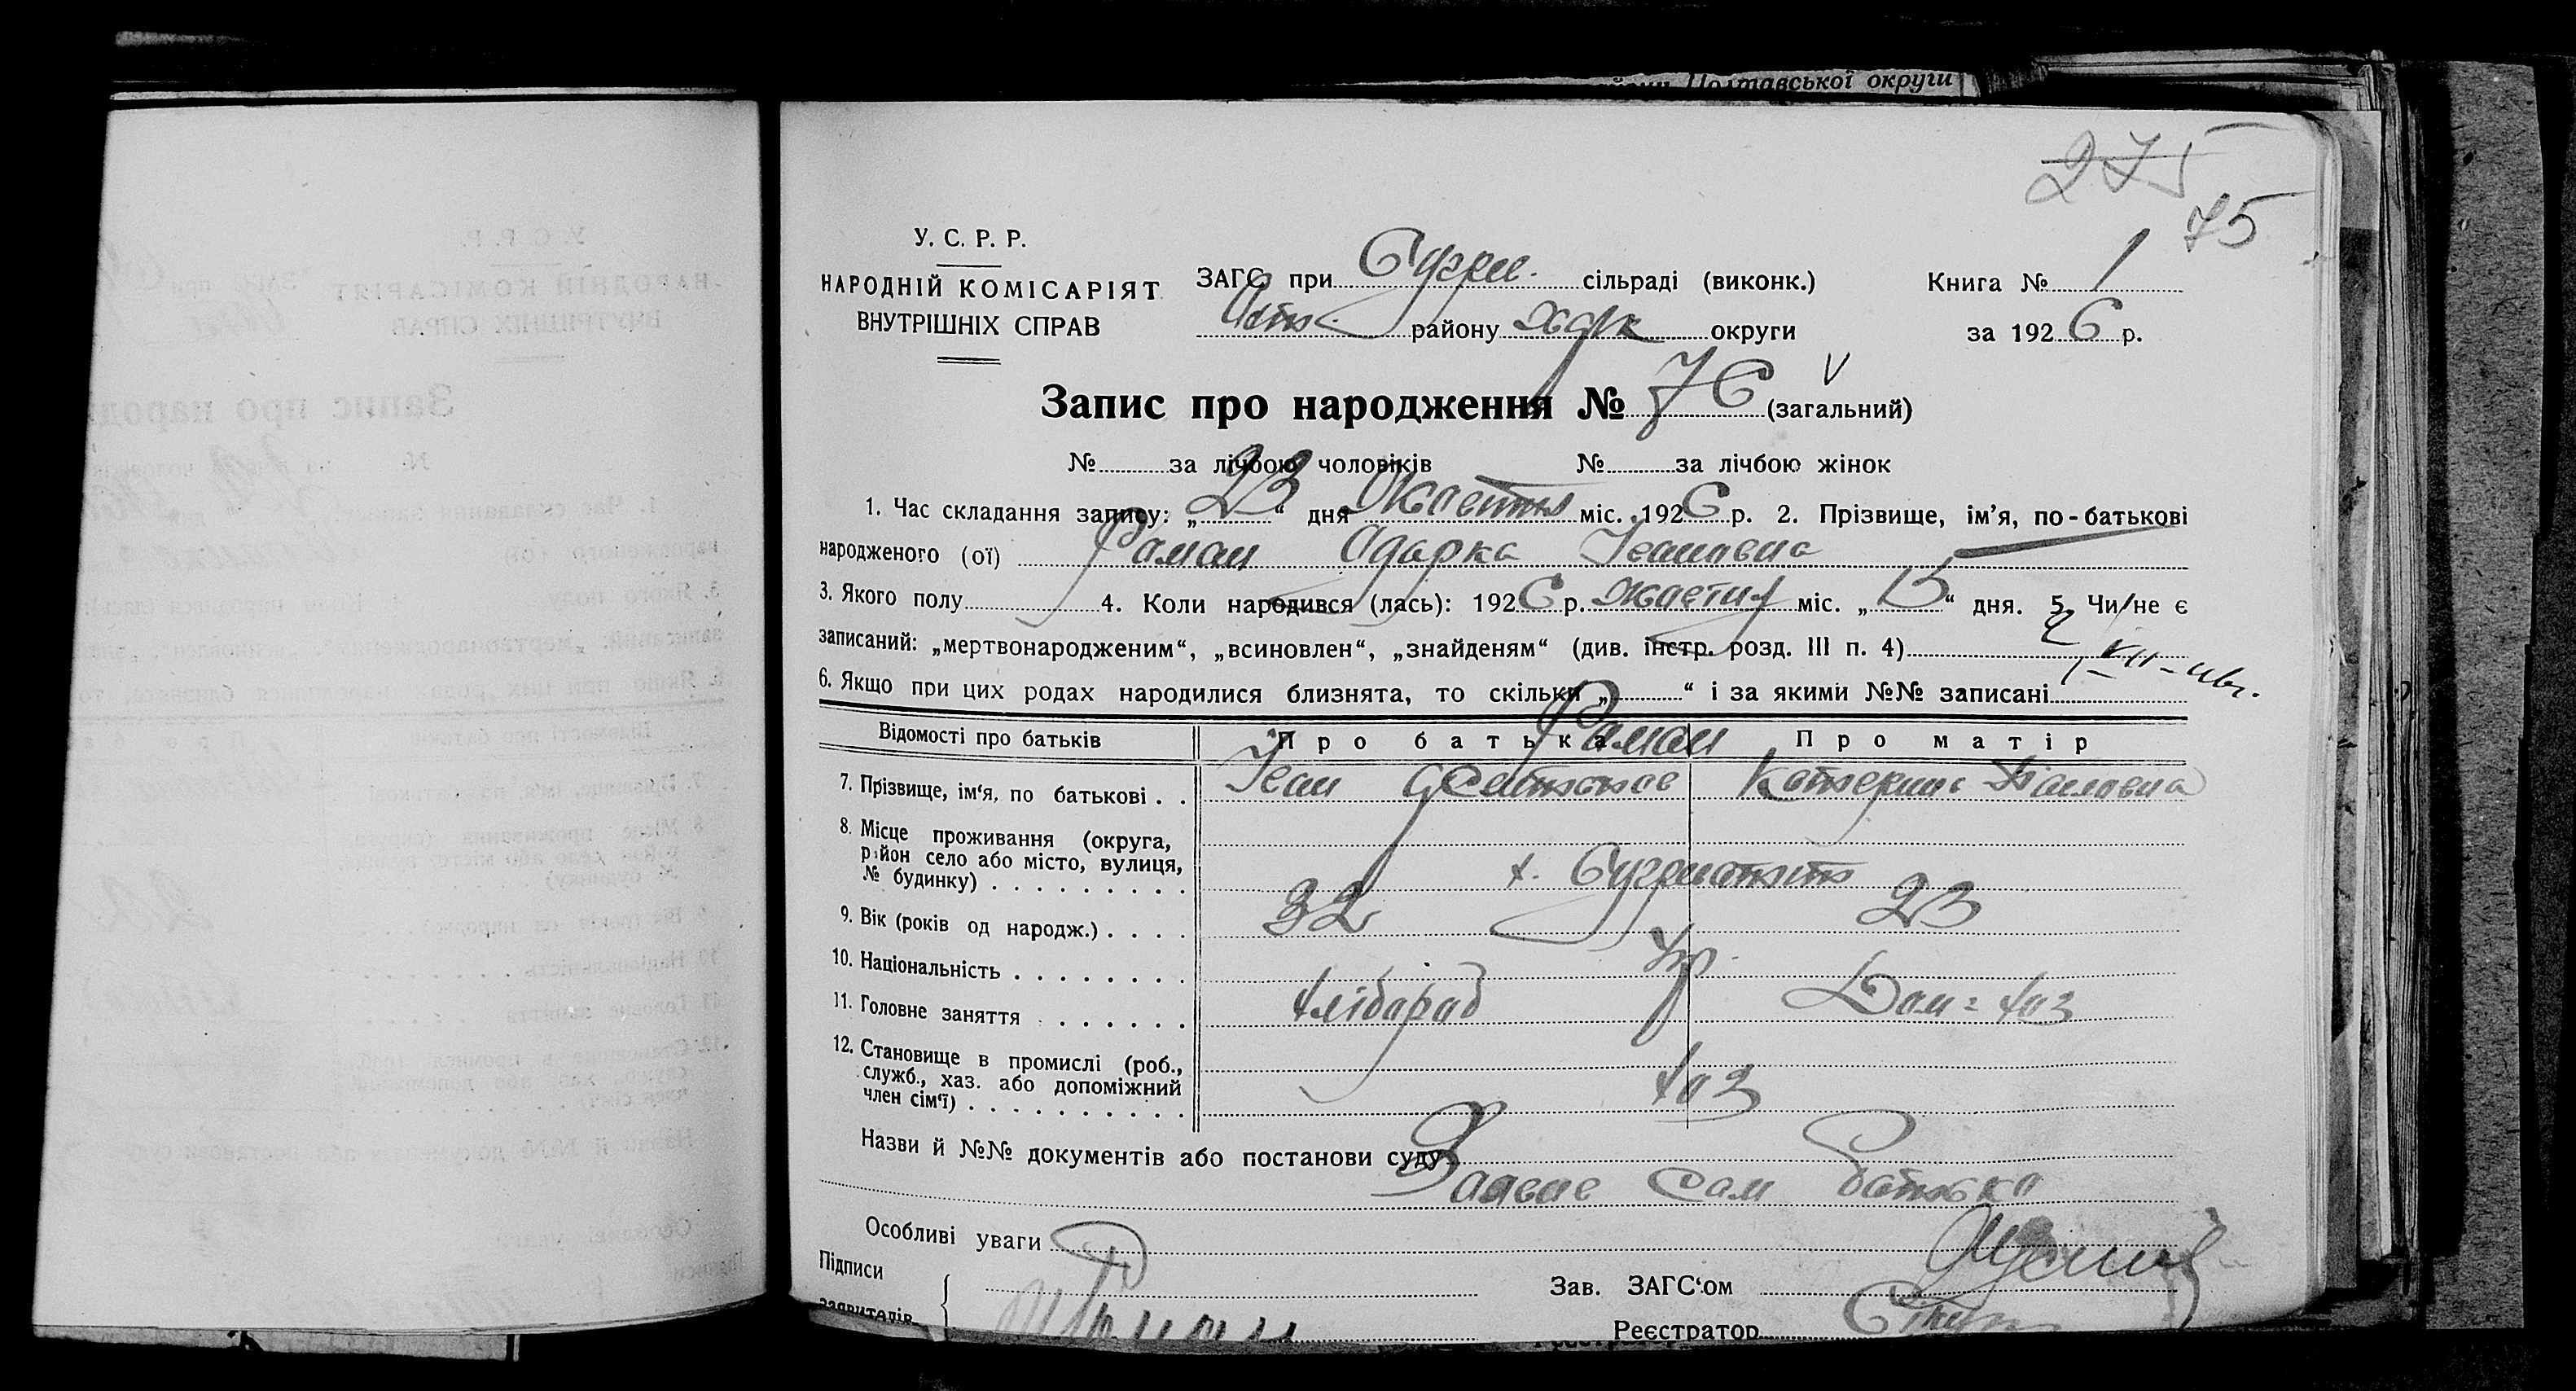 Полтавської округи
275
75
У. С. Р. Р.
НАРОДНІЙ КОМІСАРІЯТ
ВНУТРІШНІХ СПРАВ
ЗАГС при сільраді (виконк.)
району Харк округи
Книга № 1
за 1926 р.
Запис про народження № 76 (загальний)
№ за лічбою чоловіків № за лічбою жінок
1. Час складання запису: „23“ дня Жовтня міс. 1926 р. 2. Прізвище, ім’я, по-батькові
народженого (ої) Раман Одарка Івановна
3. Якого полу 4. Коли народився (лась): 1926 р. жовтня міс. „15“ дня. 5. Чи не є
записаний: „мертвонародженим“, „всиновлен“, „знайденям“ (див. інстр. розд. III п. 4)
6. Якщо при цих родах народилися близнята, то скільки „ “ і за якими №№ записані
Відомості про батьків Про батька Про матір
Раман
7. Прізвище, ім‘я, по батькові . . Іван Катерина Павловна
8. Місце проживання (округа,
район село або місто, вулиця,
№ будинку) . . . . . . . . . х.
9. Вік (років од народж.) . . . . 32 23
10. Національність . . . . . . . . Укр.
11. Головне заняття . . . . . . хлібороб Дом = хаз
12. Становище в промислі (роб.,
служб., хаз. або допоміжний
член сім‘ї) . . . . . . . . . . хаз
Назви й №№ документів або постанови суду
Заявив сам батько
Особливі уваги
Підписи
заявителів
Раман
Зав. ЗАГС‘ом
Реєстратор